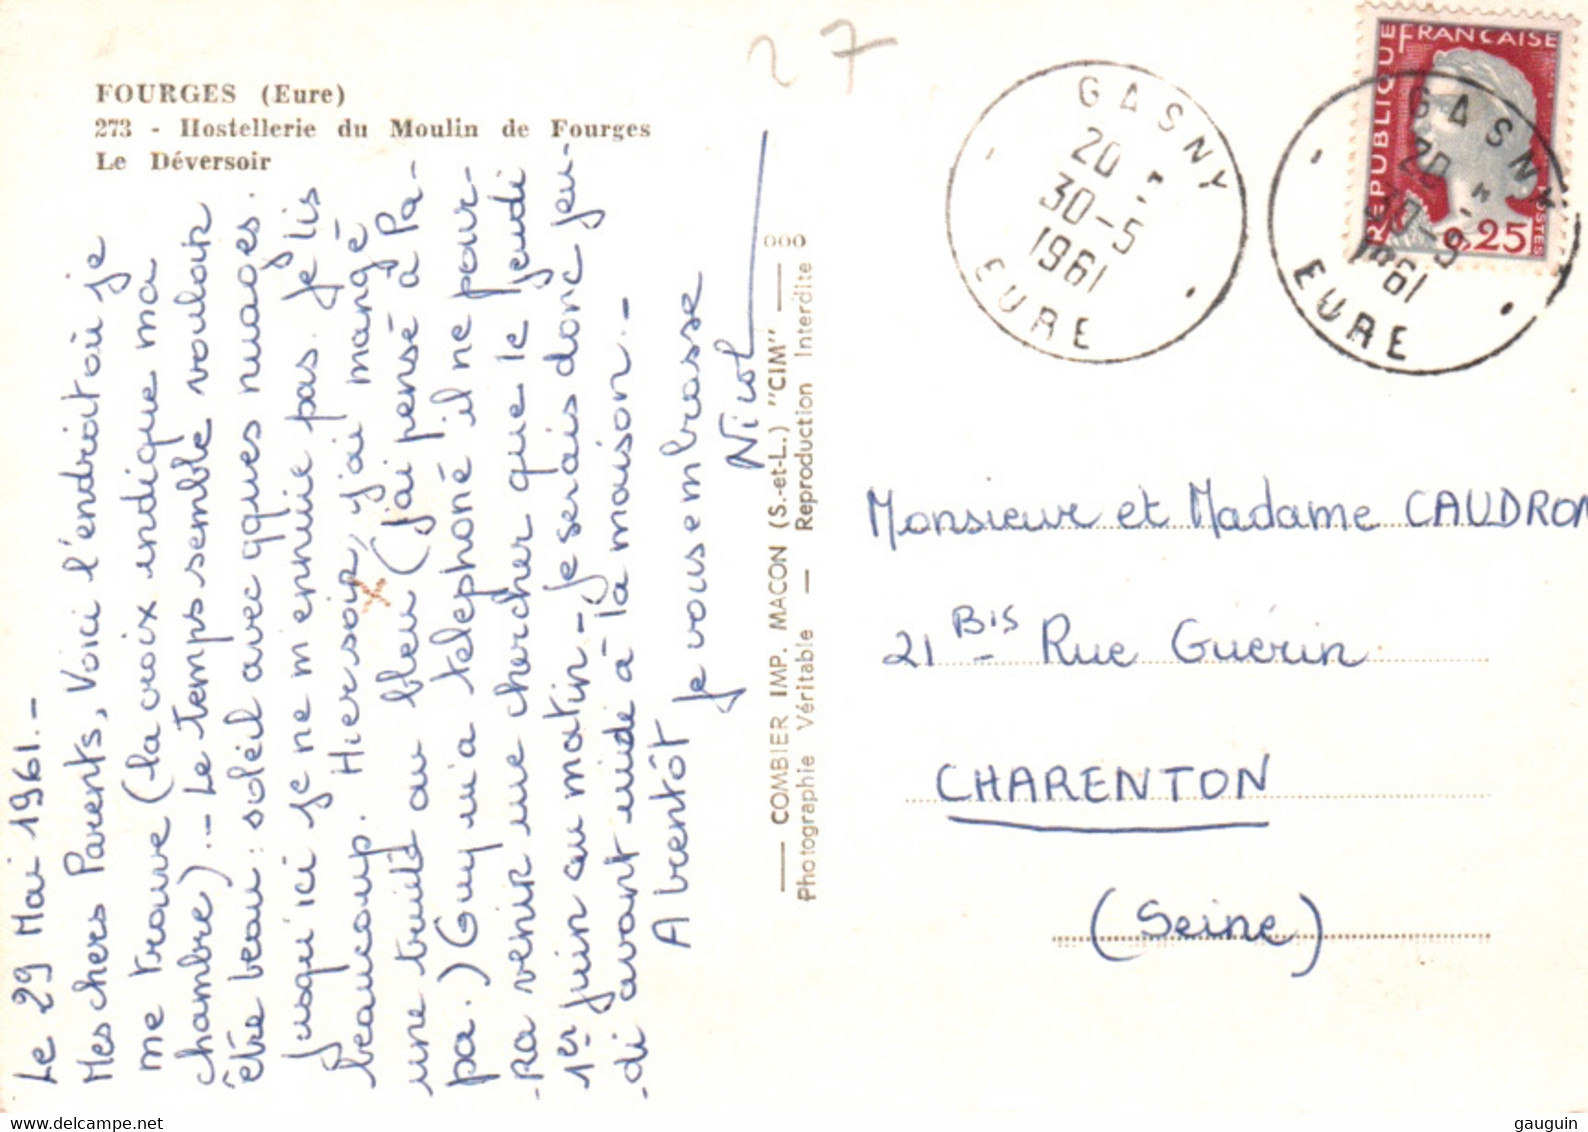 27
FOURGES (Eure)
273 - Hostellerie du Moulin de Fourges
Le Déversoir
Le 29 Mai 1961.-
Mes chers Parents, Voici l'endroit où je
me trouve (la croix indique ma
chambre).- Le temps semble vouloir
être beau : soleil avec qques nuages.
Jusqu'ici je ne m'ennuie pas. Je lis
beaucoup. Hier soir, j'ai mangé
une truite au bleu (j'ai pensé à Pa-
pa.) Guy m'a téléphoné il ne pour-
-ra venir me chercher que le jeudi
1er juin au matin - je serais donc jeu-
-di avant midi à la maison.-
A bientôt
je vous embrasse
Nicol
COMBIER IMP. MACON (S.-et-L.) "CIM"
Photographie Véritable — Reproduction Interdite
000
GASNY
20
30-5
1961
EURE
REPUBLIQUE FRANCAISE
0.25
POSTES
GASNY
20
30-5
1961
EURE
Monsieur et Madame CAUDRON
21 Bis Rue Guérin
CHARENTON
(Seine)
gauguin - delcampe.net